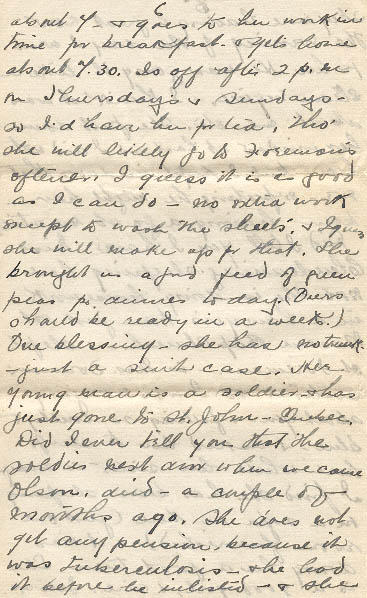 6
about 7 - & goes to her work in
time for breakfast. & gets home
about 7.30. Is off after 2 p.m
on Thursdays & Sundays -
so I'd have her for tea, tho'
she will likely go to Foremans
oftener. I guess it is as good
as I can do - no extra work
except to wash the sheets, & I guess
she will make up for that. She
brought us a good feed of green
peas for dinner to day. (Ours
should be ready in a week.)
One blessing - she has no trunk -
- just a suit case. Her
young man is a soldier & has
just gone to St. John - Quebec.
Did I ever tell you that the
soldier next door when we came
Olson, died - a couple of
months ago. She does not
get any pension, because it
was tuberculosis - & he had
it before he inlisted - & she